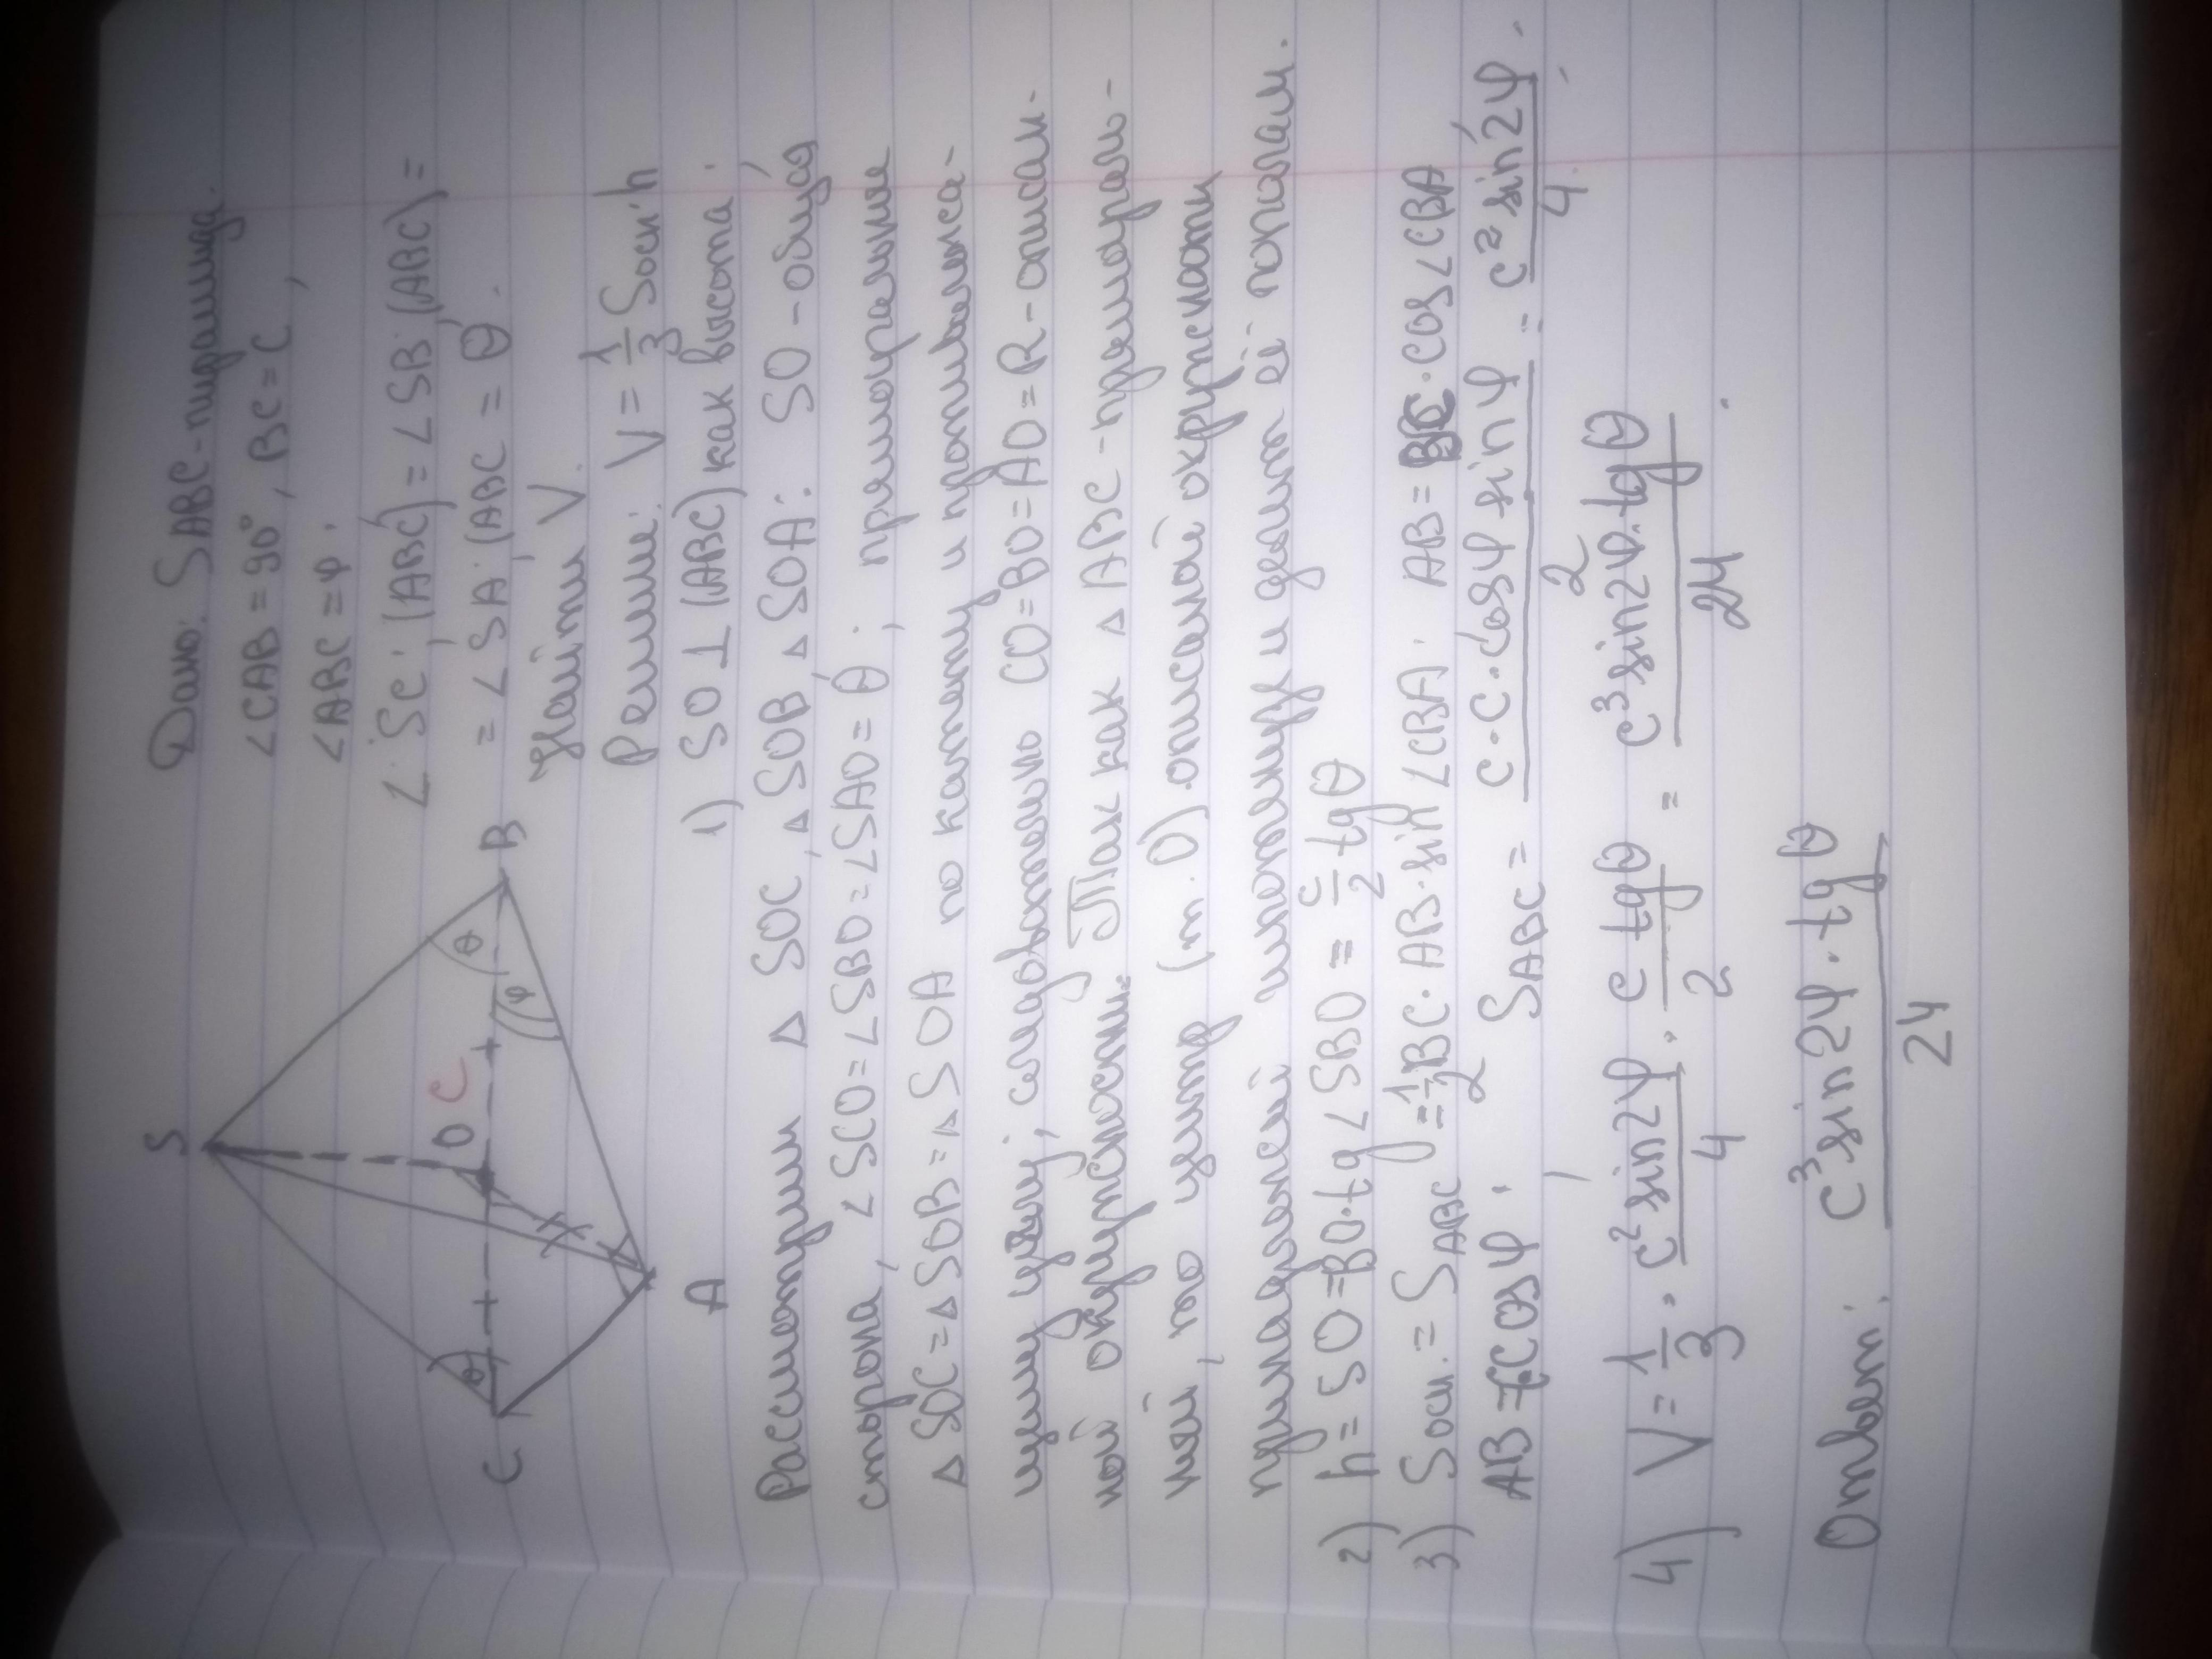 S
O
C
C
B
A
θ
θ
φ
Дано: SABC-пирамида.
∠CAB = 90°, BC = C,
∠ABC = φ.
∠ SC; (ABC) = ∠ SB; (ABC) =
= ∠ SA; (ABC = θ.
Найти V.
Решение: V = 1/3 Sосн·h
1) SO ⊥ (ABC) как высота.
Рассмотрим Δ SOC, Δ SOB, Δ SOA: SO - общая
сторона, ∠ SCO = ∠ SBO = ∠ SAO = θ; прямоугольные
Δ SOC = Δ SOB = Δ SOA по катету и противолежа-
щему углу; следовательно CO = BO = AO = R - описан-
ной окружности. Так как Δ ABC - прямоуголь-
ный, то центр (т. O) описаной окружности
принадлежей гипотенузе и делит её пополам.
2) h = SO = BO·tg ∠ SBO = c/2 tg θ
3) Sосн. = SABC = 1/2 BC·AB·sin ∠CBA. AB = BC·cos ∠CBA
AB = C cos φ. SABC = c·c·cos φ sin φ / 2 = c² sin 2φ / 4.
4) V = 1/3 · c² sin 2φ / 4 · c tg θ / 2 = c³ sin 2φ · tg θ / 24.
Ответ: c³ sin 2φ · tg θ / 24